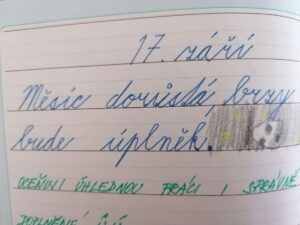 17. září
Měsíc dorůstá, brzy
bude úplněk.
OCEŇUJI ÚHLEDNOU PRÁCI I SPRÁVNĚ
DOPLNĚNÉ Ů,Ú